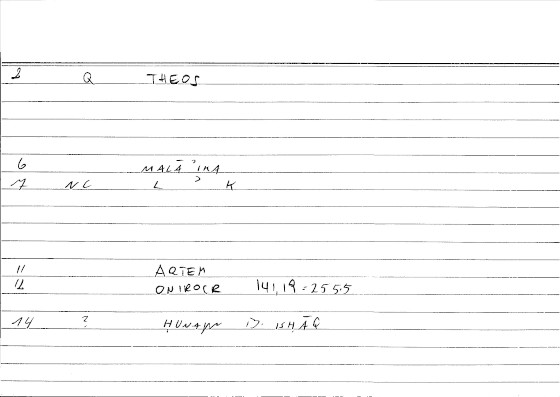 2 Q THEOS
6 MALĀʾIKA
7 NC L ʾ K
11 ARTEM
12 ONIROCR 141,19 = 255.5
14 ? ḤUNAYN B. ISḤĀQ